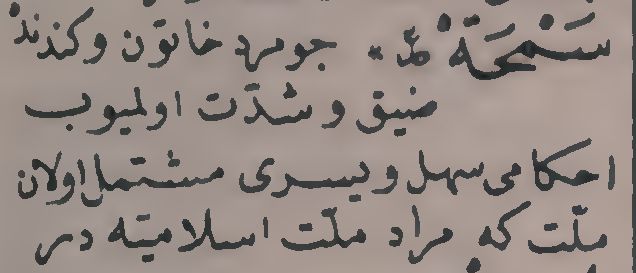 سَمْحَة جومرد خاتون وكندنده
ضيق و شدّت اولميوب
احكامى سهل ويسرى مشتمل اولان
ملّت كه مراد ملّت اسلاميّه در